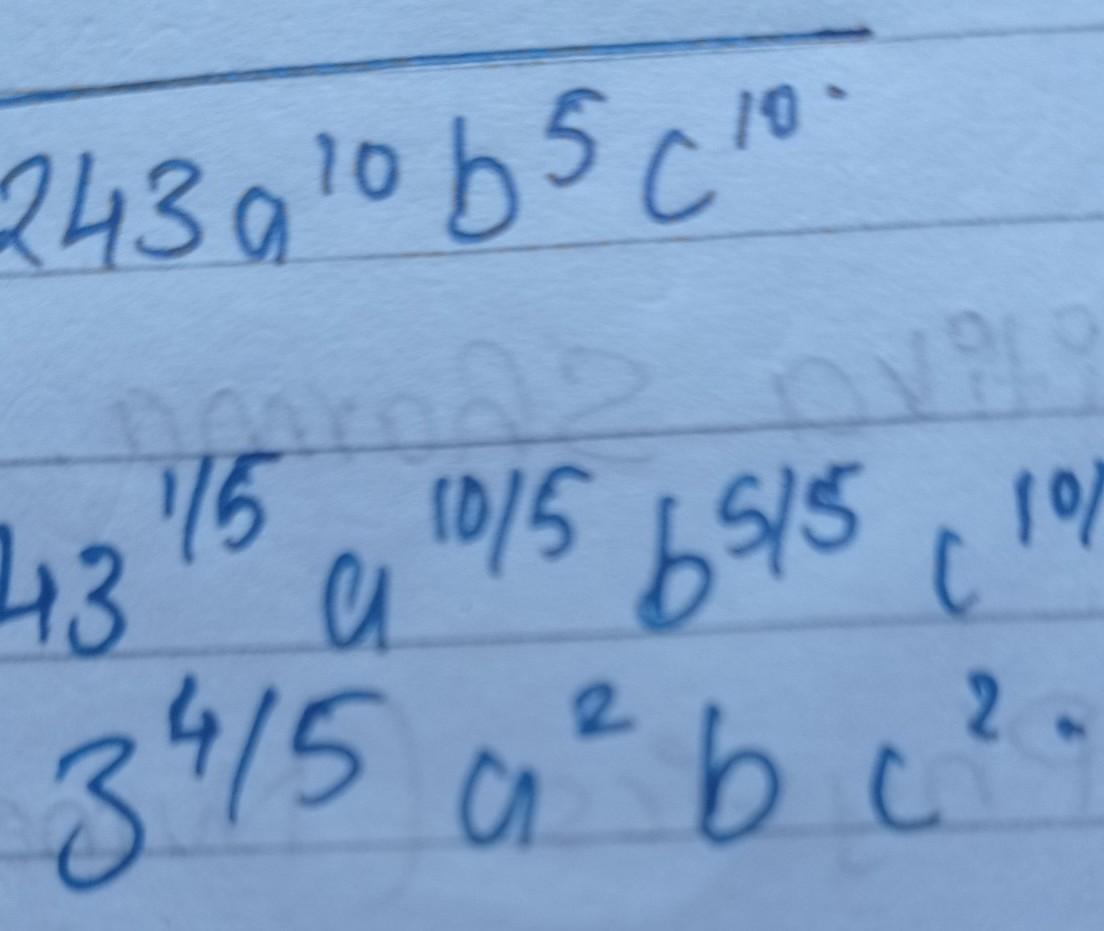 243a¹⁰ b⁵ c¹⁰.
43^1/5 a^10/5 b^5/5 c^10/
3^4/5 a² b c².